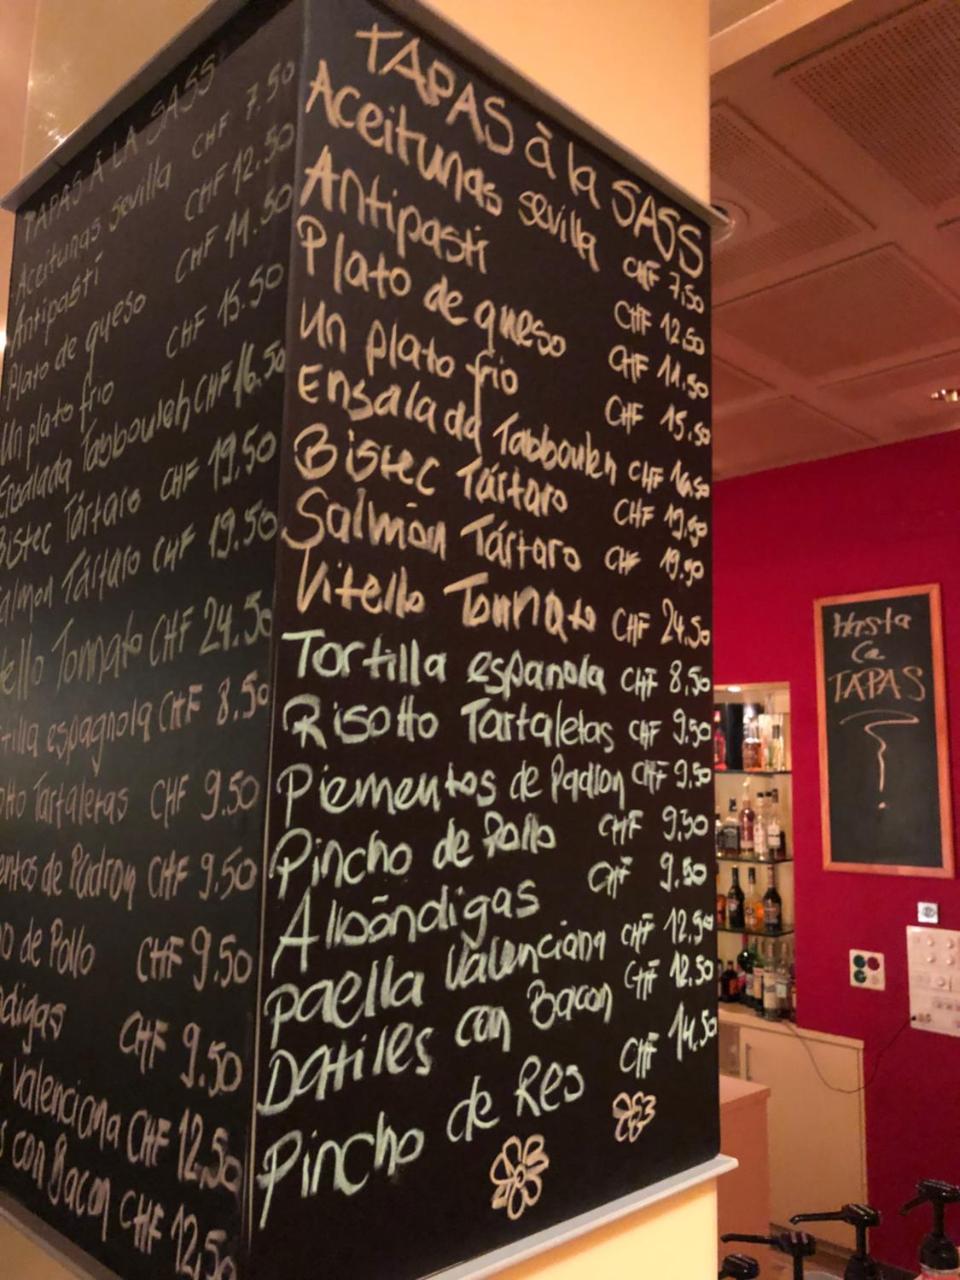 TAPAS À LA SASS
Aceitunas sevilla CHF 7.50
Antipasti CHF 12.50
Plato de queso CHF 11.50
Un plato frio CHF 15.50
Ensalada Tabbouleh CHF 16.50
Bistec Tártaro CHF 19.50
almon Tártaro CHF 19.50
tello Tonnato CHF 24.50
tilla espagnola CHF 8.50
otto Tartaletas CHF 9.50
entos de Padron CHF 9.50
o de Pollo CHF 9.50
digas CHF 9.50
Valenciana CHF 12.50
s con Bacon CHF 12,50
TAPAS à la SASS
Aceitunas sevilla CHF 7,50
Antipasti CHF 12.50
Plato de queso CHF 11.50
Un plato frio CHF 15,50
Ensalada Tabbouleh CHF 16,50
Bistec Tártaro CHF 19,50
Salmón Tártaro CHF 19,50
Vitello Tonnato CHF 24,50
Tortilla espanola CHF 8,50
Risotto Tartaletas CHF 9,50
Piementos de Padron CHF 9,50
Pincho de Pollo CHF 9,50
Albóndigas CHF 9,50
Paella Valenciana CHF 12,50
Datiles con Bacon CHF 12,50
Pincho de Res CHF 14,50
Hasta
La
TAPAS